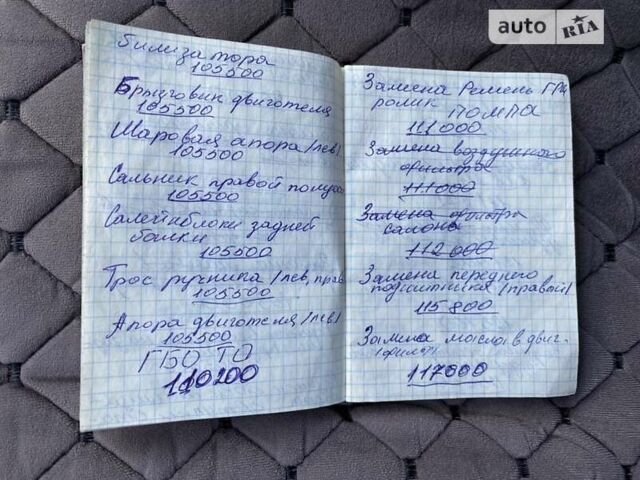 билизатора
105500
Брызговик двигателя
105500
Шаровая апора /лев/
105500
Сальник правой полуос
105500
Салентблоки задней
балки
105500
Трос ручника /лев, прав
105500
Апора двигателя /лев/
105500
ГБО ТО
110200
Замена Ремень ГРЦ
ролик ПОМПА
111000
Замена воздушного
фильтра
111000
Замена фильтра
салона
112000
Замена переднего
подшипника /правый/
115800
Замена масла в двиг.
/фильт/
117000
auto RIA